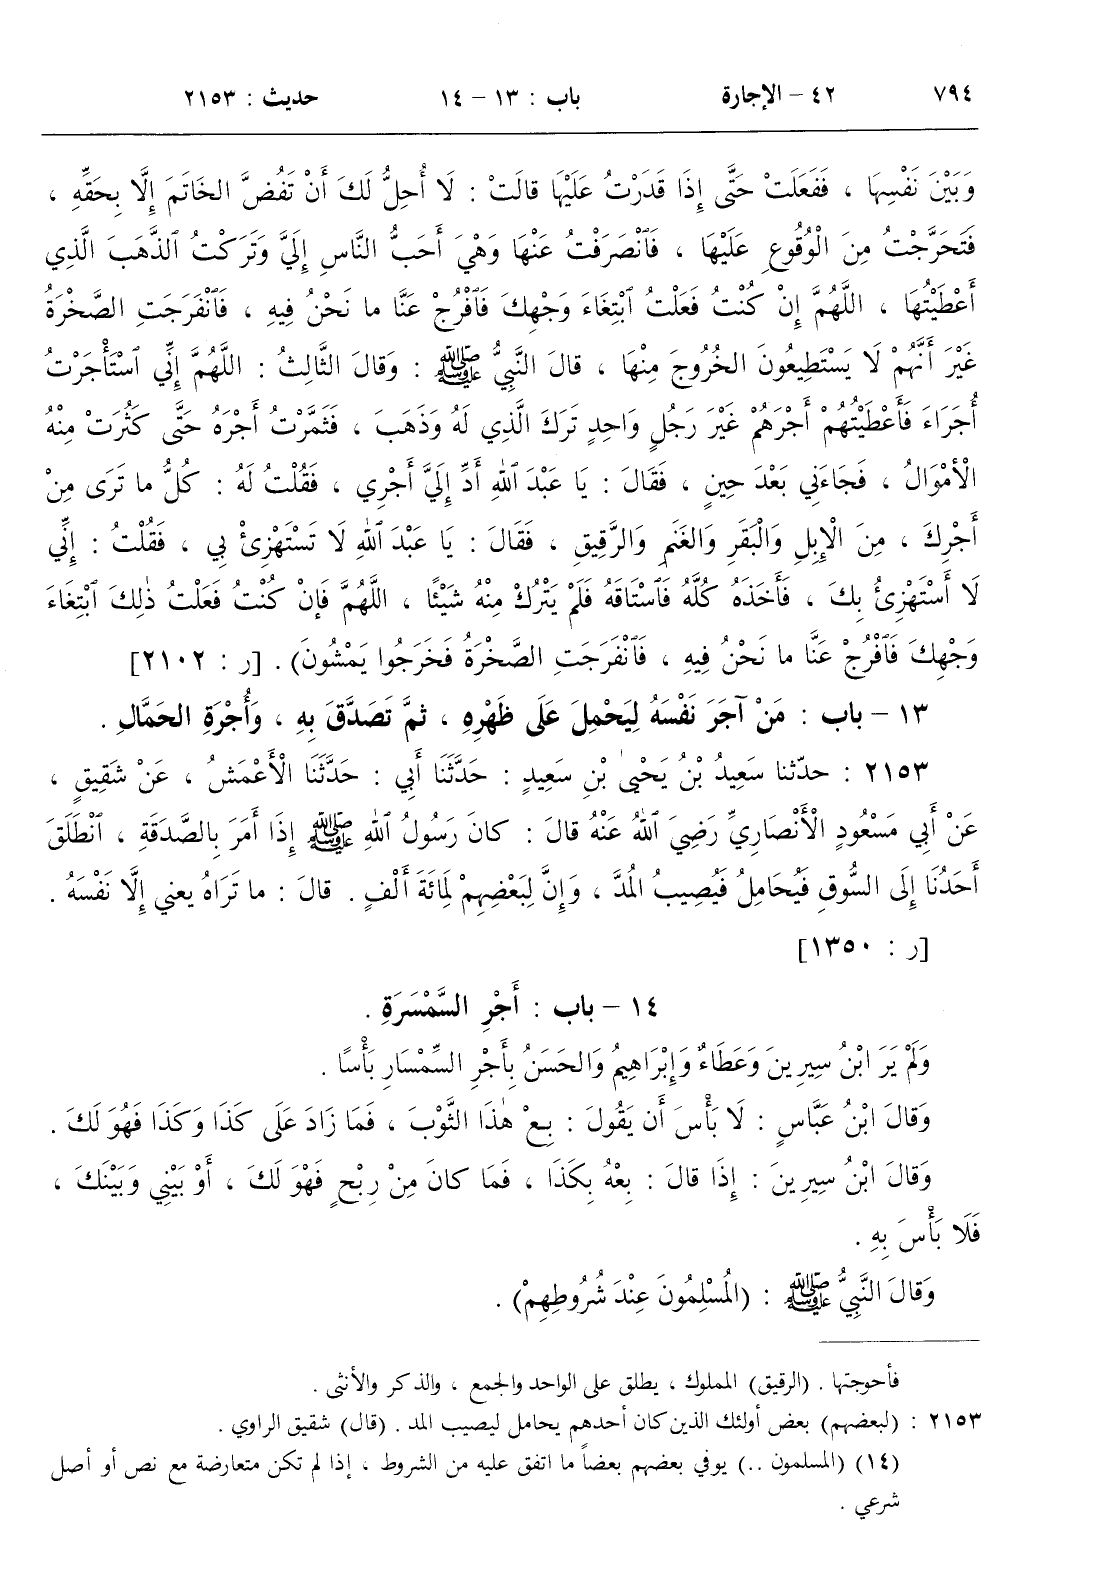 ٧٩٤ ٤٢ – الإجارة باب : ١٣ – ١٤ حديث : ٢١٥٣
وَبَيْنَ نَفْسِهَا ، فَفَعَلَتْ حَتَّى إِذَا قَدَرْتُ عَلَيْهَا قالَتْ : لَا أُحِلُّ لَكَ أَنْ تَفُضَّ الخَاتَمَ إِلَّا بِحَقِّهِ ،
فَتَحَرَّجْتُ مِنَ الْوُقُوعِ عَلَيْهَا ، فَٱنْصَرَفْتُ عَنْهَا وَهْيَ أَحَبُّ النَّاسِ إِلَيَّ وَتَرَكْتُ ٱلذَّهَبَ الَّذِي
أَعْطَيْتُهَا ، اللَّهُمَّ إِنْ كُنْتُ فَعَلْتُ ٱبْتِغَاءَ وَجْهِكَ فَٱفْرُجْ عَنَّا ما نَحْنُ فِيهِ ، فَٱنْفَرَجَتِ الصَّخْرَةُ
غَيْرَ أَنَّهُمْ لَا يَسْتَطِيعُونَ الخُرُوجَ مِنْهَا ، قالَ النَّبِيُّ ﷺ : وَقالَ الثَّالِثُ : اللَّهُمَّ إِنِّي ٱسْتَأْجَرْتُ
أُجَرَاءَ فَأَعْطَيْتُهُمْ أَجْرَهُمْ غَيْرَ رَجُلٍ وَاحِدٍ تَرَكَ الَّذِي لَهُ وَذَهَبَ ، فَثَمَّرْتُ أَجْرَهُ حَتَّى كَثُرَتْ مِنْهُ
الْأَمْوَالُ ، فَجَاءَنِي بَعْدَ حِينٍ ، فَقَالَ : يَا عَبْدَ ٱللهِ أَدِّ إِلَيَّ أَجْرِي ، فَقُلْتُ لَهُ : كُلُّ ما تَرَى مِنْ
أَجْرِكَ ، مِنَ الْإِبِلِ وَالْبَقَرِ وَالْغَنَمِ وَالرَّقِيقِ ، فَقَالَ : يَا عَبْدَ ٱللهِ لَا تَسْتَهْزِئْ بِي ، فَقُلْتُ : إِنِّي
لَا أَسْتَهْزِئُ بِكَ ، فَأَخَذَهُ كُلَّهُ فَٱسْتَاقَهُ فَلَمْ يَتْرُكْ مِنْهُ شَيْئًا ، اللَّهُمَّ فَإِنْ كُنْتُ فَعَلْتُ ذٰلِكَ ٱبْتِغَاءَ
وَجْهِكَ فَٱفْرُجْ عَنَّا ما نَحْنُ فِيهِ ، فَٱنْفَرَجَتِ الصَّخْرَةُ فَخَرَجُوا يَمْشُونَ) . [ر : ٢١٠٢]
١٣ – باب : مَنْ آجَرَ نَفْسَهُ لِيَحْمِلَ عَلَى ظَهْرِهِ ، ثمَّ تَصَدَّقَ بِهِ ، وَأُجْرَةِ الحَمَّالِ .
٢١٥٣ : حدّثنا سَعِيدُ بْنُ يَحْيىٰ بْنِ سَعِيدٍ : حَدَّثَنَا أَبِي : حَدَّثَنَا الْأَعْمَشُ ، عَنْ شَقِيقٍ ،
عَنْ أَبِي مَسْعُودٍ الْأَنْصَارِيِّ رَضِيَ ٱللهُ عَنْهُ قالَ : كانَ رَسُولُ ٱللهِ ﷺ إِذَا أَمَرَ بِالصَّدَقَةِ ، ٱنْطَلَقَ
أَحَدُنَا إِلَى السُّوقِ فَيُحَامِلُ فَيُصِيبُ المُدَّ ، وَإِنَّ لِبَعْضِهِمْ لَمِائَةَ أَلْفٍ . قالَ : ما تَرَاهُ يعني إِلَّا نَفْسَهُ .
[ر : ١٣٥٠]
١٤ – باب : أَجْرِ السَّمْسَرَةِ .
وَلَمْ يَرَ ابْنُ سِيرِينَ وَعَطَاءٌ وَإِبْرَاهِيمُ وَالحَسَنُ بِأَجْرِ السِّمْسَارِ بَأْسًا .
وَقالَ ابْنُ عَبَّاسٍ : لَا بَأْسَ أَن يَقُولَ : بِعْ هٰذَا الثَّوْبَ ، فَمَا زَادَ عَلَى كَذَا وَكَذَا فَهُوَ لَكَ .
وَقالَ ابْنُ سِيرِينَ : إِذَا قالَ : بِعْهُ بِكَذَا ، فَمَا كانَ مِنْ رِبْحٍ فَهْوَ لَكَ ، أَوْ بَيْنِي وَبَيْنَكَ ،
فَلَا بَأْسَ بِهِ .
وَقالَ النَّبِيُّ ﷺ : (المُسْلِمُونَ عِنْدَ شُرُوطِهِمْ) .
فأحوجتها . (الرقيق) المملوك ، يطلق على الواحد والجمع ، والذكر والأنثى .
٢١٥٣ : (لبعضهم) بعض أولئك الذين كان أحدهم يحامل ليصيب المد . (قال) شقيق الراوي .
(١٤) (المسلمون ..) يوفي بعضهم بعضاً ما اتفق عليه من الشروط ، إذا لم تكن متعارضة مع نص أو أصل
شرعي .